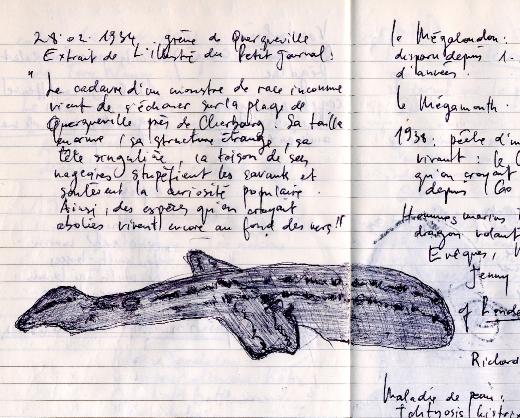 28.02.1934 grève de Querqueville
Extrait de L'illustré du Petit Journal:
"Le cadavre d'un monstre de race inconnue
vient de s'échouer sur la plage de
Querqueville près de Cherbourg. Sa taille
énorme, sa structure étrange, sa
tête singulière, la toison de ses
nageoires stupéfient les savants et
soulèvent la curiosité populaire.
Ainsi, des espèces qu'on croyait
abolies vivent encore au fond des mers!!"
le Mégalodon:
disparu depuis 1.
d'années.
le Mégamouth.
1938: pêche d'un
vivant: le C
qu'on croyait
depuis
Hommes marins
dragon volant
Evêques,
Jenny
of
Richard
Maladie de peau:
Ichtyosis hystrix